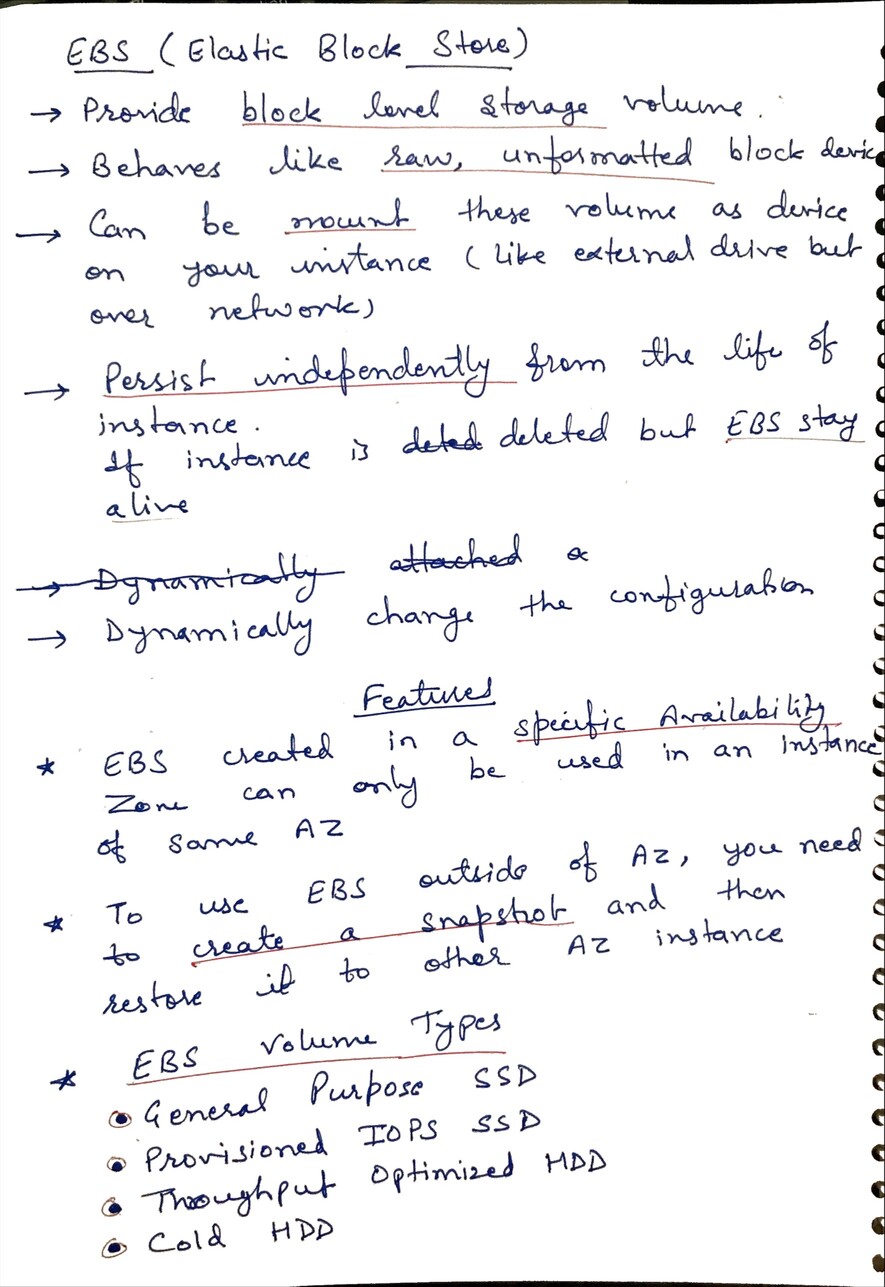 EBS (Elastic Block Store)
→ Provide block level storage volume.
→ Behaves like raw, unformatted block devic
→ Can be mount these volume as device
on your instance (like external drive but
over network)
→ Persist independently from the life of
instance.
If instance is deted deleted but EBS stay
alive
→ Dynamically attached a
→ Dynamically change the configuration
Features
* EBS created in a specific Availability
Zone can only be used in an instance
of same AZ
* To use EBS outside of AZ, you need
to create a snapshot and then
restore it to other AZ instance
* EBS Volume Types
• General Purpose SSD
• Provisioned IOPS SSD
• Throughput Optimized HDD
• Cold HDD